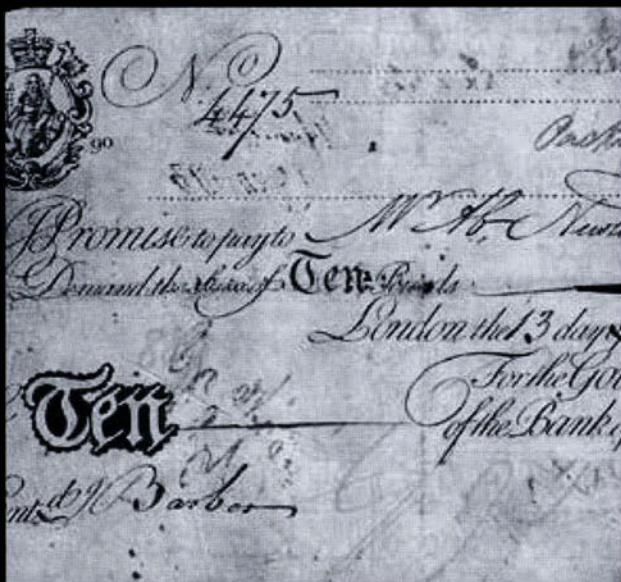 No
4475
90
I Promise to pay to Mr Ab.
Demand the Sum of Ten Pounds
London the 13 day
For the Go
Ten
of the Bank
Entd J Barber